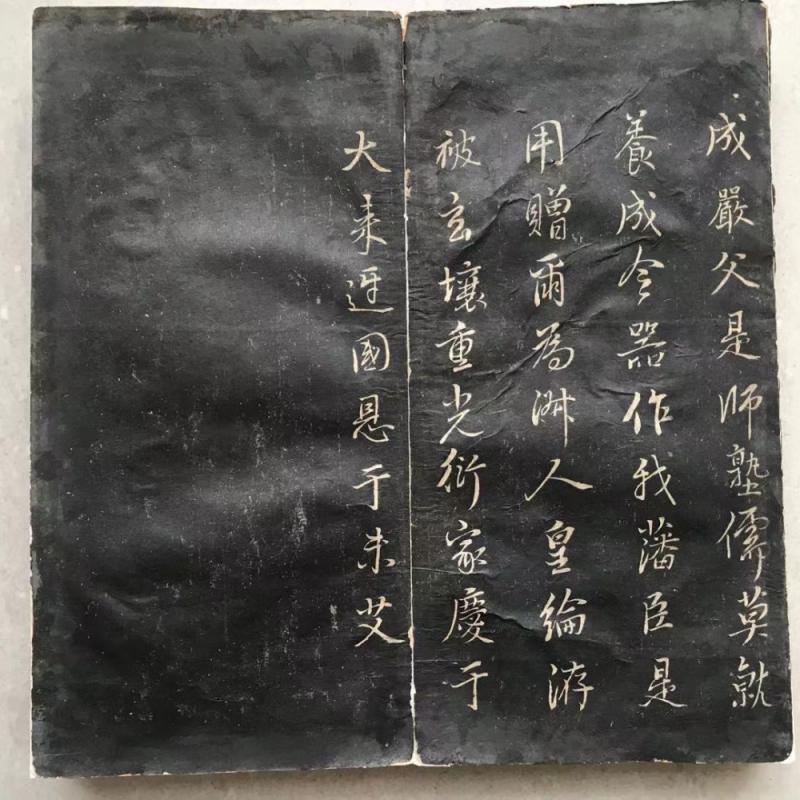 成嚴父是師塾儒莫就
養成令器作我藩臣是
用贈爾為淋人皇綸洊
被玄壤重光衍家慶于
大耒迓國恩于未艾